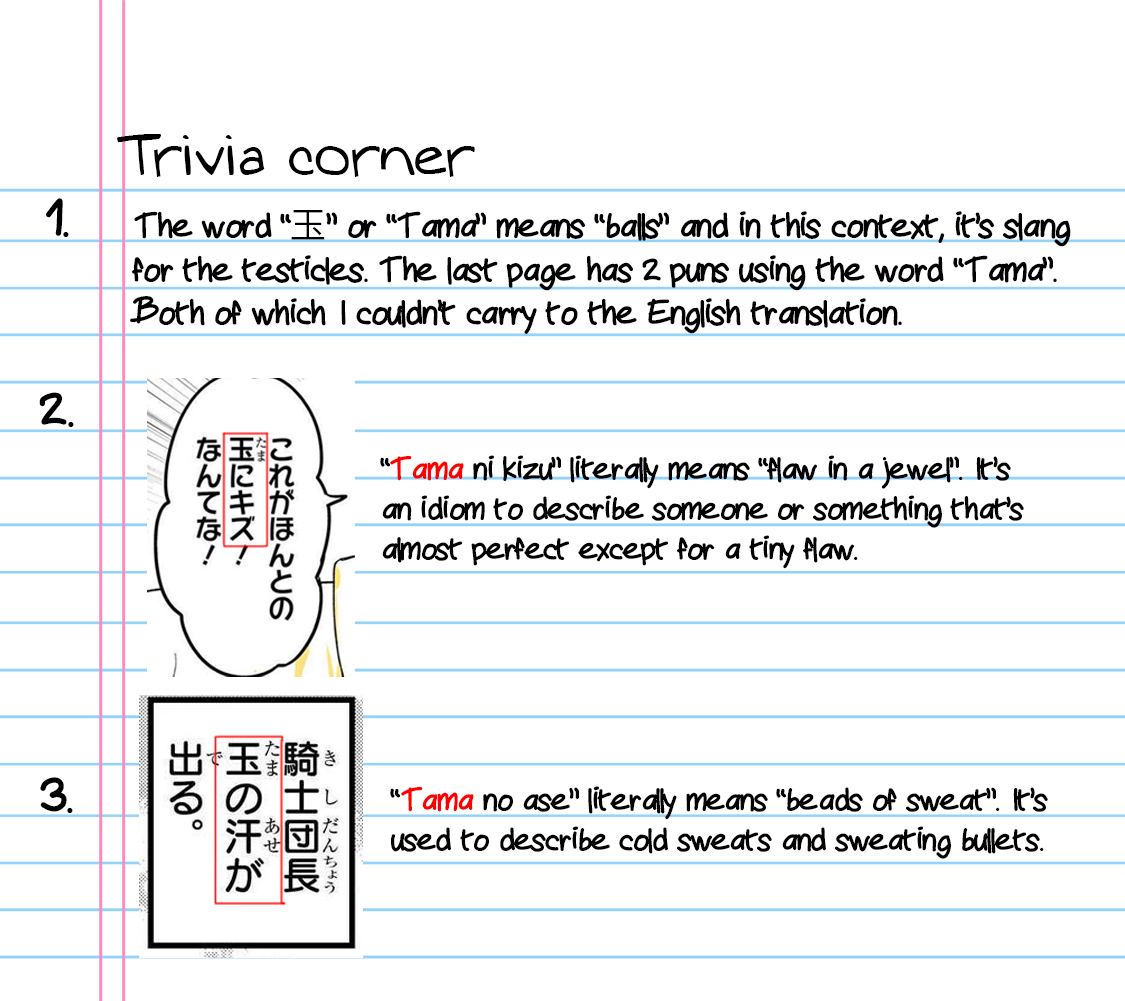 Trivia corner
1.
The word “玉” or “Tama” means “balls” and in this context, it's slang
for the testicles. The last page has 2 puns using the word “Tama”.
Both of which I couldn't carry to the English translation.
2.
これがほんとの
玉にキズ！
たま
なんてな！
“Tama ni kizu” literally means “flaw in a jewel”. It's
an idiom to describe someone or something that's
almost perfect except for a tiny flaw.
3.
騎士団長
きしだんちょう
玉の汗が
たま あせ
出る。
で
“Tama no ase” literally means “beads of sweat”. It's
used to describe cold sweats and sweating bullets.